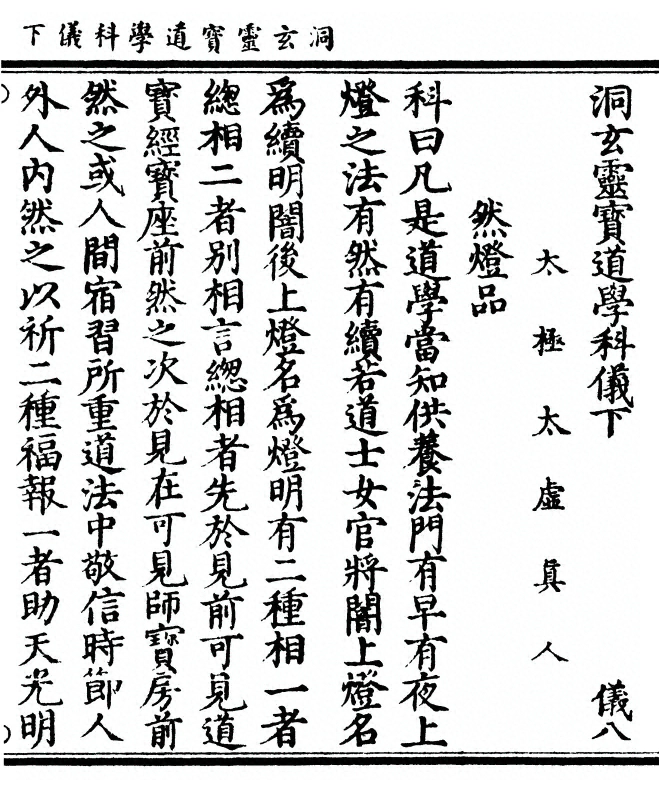 洞玄靈寶道學科儀下
洞玄靈寶道學科儀下 儀八
太極太虛真人
然燈品
科曰凡是道學當知供養法門有早有夜上
燈之法有然有續若道士女官將闇上燈名
爲續明闇後上燈名爲燈明有二種相一者
總相二者別相言總相者先於見前可見道
寶經寶座前然之次於見在可見師寶房前
然之或人間宿習所重道法中敬信時節人
外人內然之以祈二種福報一者助天光明